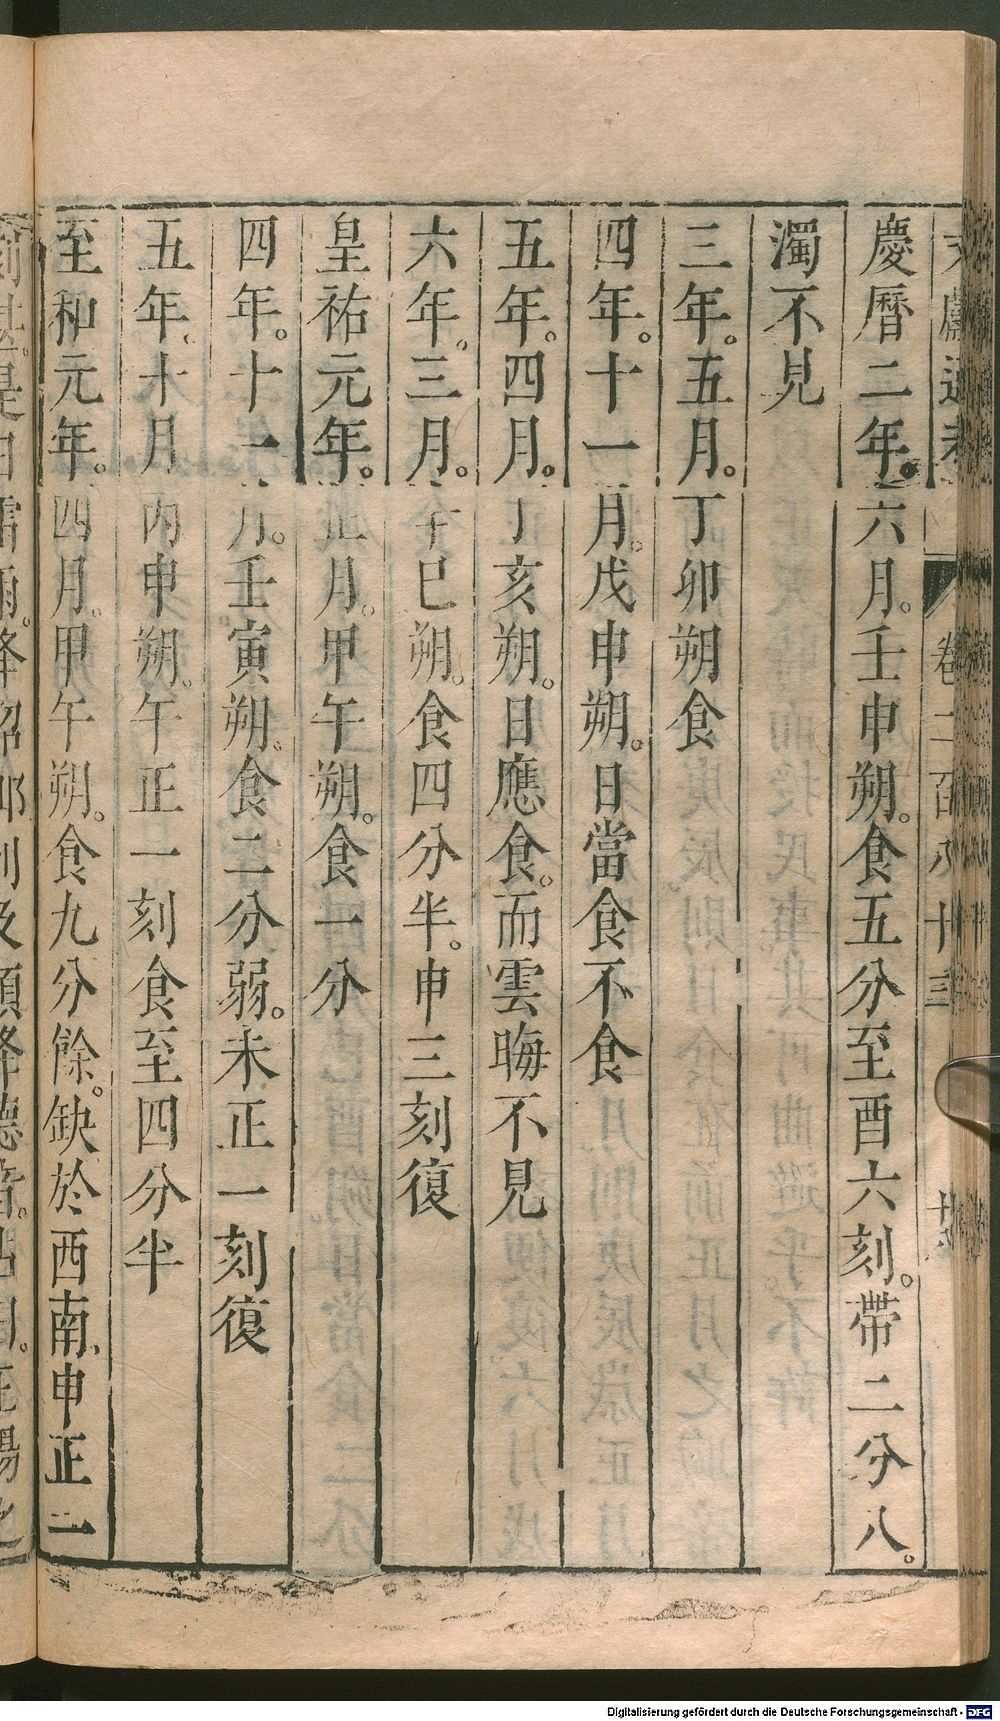 文獻通考 卷二百八十三
慶曆二年。六月。壬申朔。食五分至酉六刻。帶二分入。
濁不見
三年。五月。丁卯朔食
四年。十一月。戊申朔。日當食不食
五年。四月。丁亥朔。日應食。而雲晦不見
六年。三月。辛巳朔。食四分半。申三刻復
皇祐元年。正月。甲午朔。食一分
四年。十一月。壬寅朔。食二分弱。未正一刻復
五年。十月丙申朔。午正一刻食至四分半
至和元年。四月。甲午朔。食九分餘。缺於西南、申正一
Digitalisierung gefördert durch die Deutsche Forschungsgemeinschaft - DFG